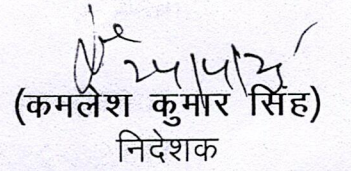 24/4/25
(कमलेश कुमार सिंह)
निदेशक